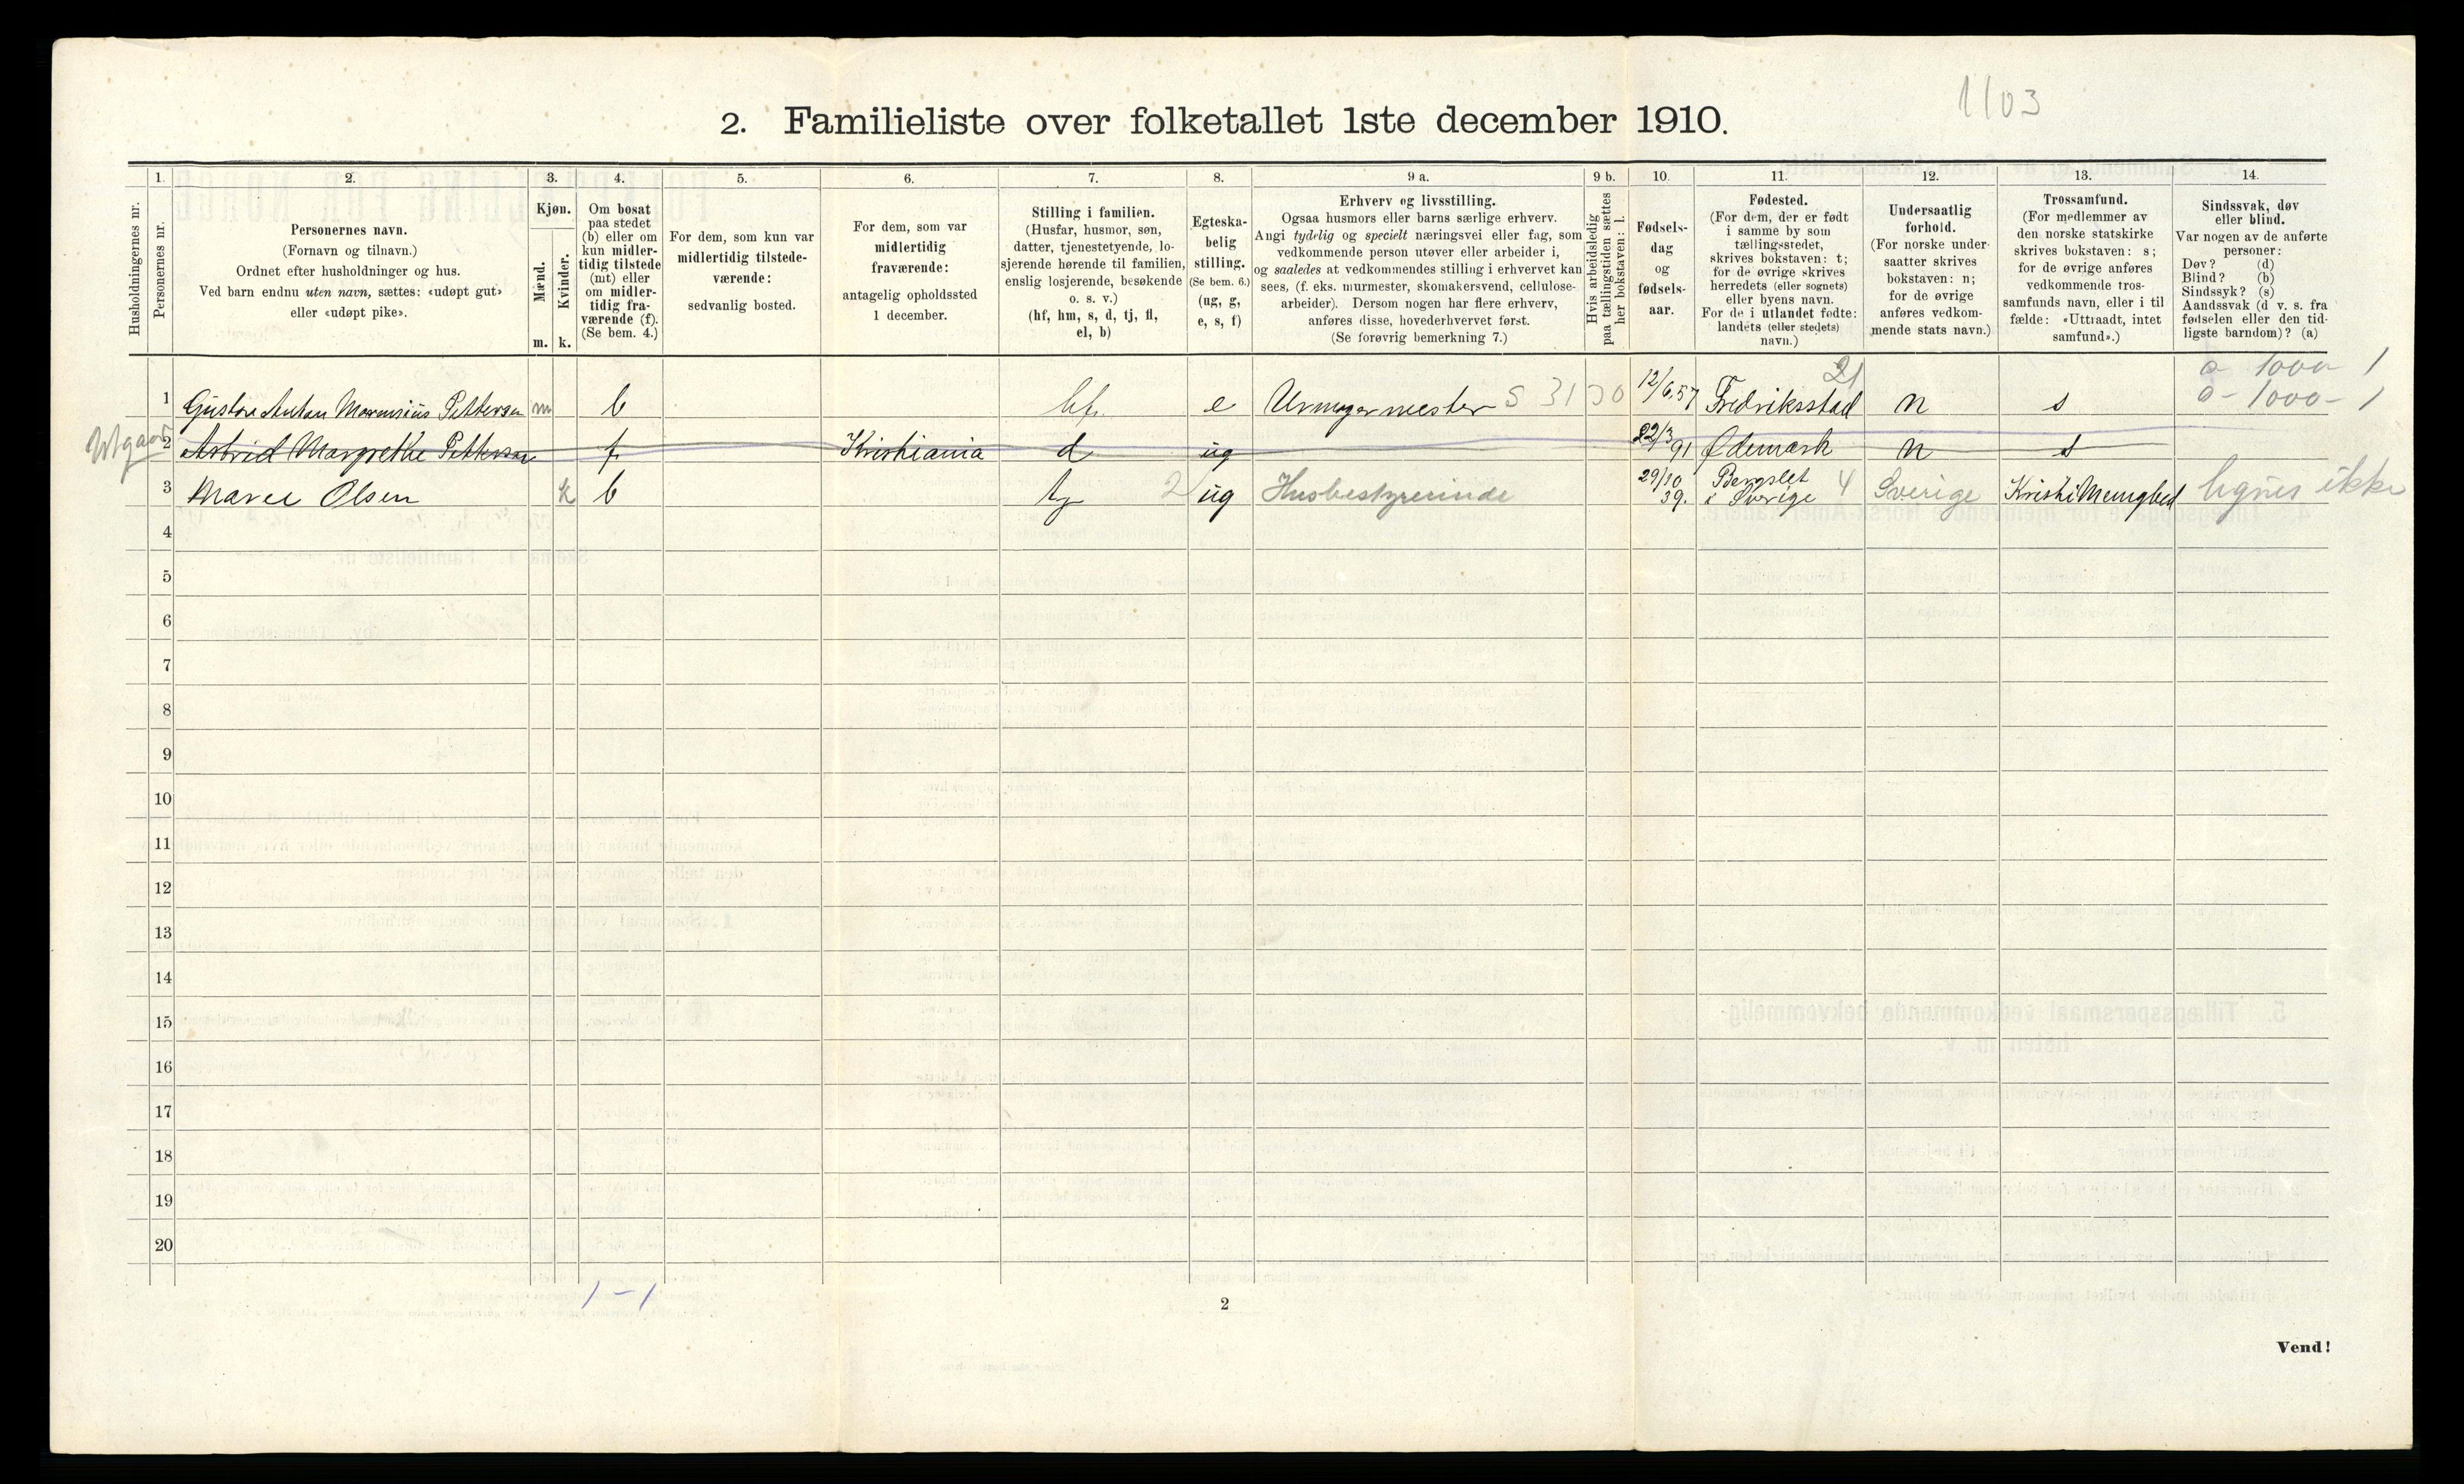 1103
2. Familieliste over folketallet 1ste december 1910.
Husholdningernes nr.
1.
Personernes nr.
2.
Personernes navn.
(Fornavn og tilnavn.)
Ordnet efter husholdninger og hus.
Ved barn endnu uten navn, sættes: «udøpt gut»
eller «udøpt pike».
3.
Kjøn.
Mænd.
Kvinder.
m. k.
4.
Om bosat
paa stedet
(b) eller om
kun midler-
tidig tilstede
(mt) eller
om midler-
tidig fra-
værende (f).
(Se bem. 4.)
5.
For dem, som kun var
midlertidig tilstede-
værende:
sedvanlig bosted.
6.
For dem, som var
midlertidig
fraværende:
antagelig opholdssted
1 december.
7.
Stilling i familien.
(Husfar, husmor, søn,
datter, tjenestetyende, lo-
sjerende hørende til familien,
enslig losjerende, besøkende
o. s. v.)
(hf, hm, s, d, tj, fl,
el, b)
8.
Egteska-
belig
stilling.
(Se bem. 6.)
(ug, g,
e, s, f)
9 a.
Erhverv og livsstilling.
Ogsaa husmors eller barns særlige erhverv.
Angi tydelig og specielt næringsvei eller fag, som
vedkommende person utøver eller arbeider i,
og saaledes at vedkommendes stilling i erhvervet kan
sees, (f. eks. murmester, skomakersvend, cellulose-
arbeider). Dersom nogen har flere erhverv,
anføres disse, hovederhvervet først.
(Se forøvrig bemerkning 7.)
9 b.
Hvis arbeidsledig
paa tællingstiden sættes
her bokstaven: l.
10.
Fødsels-
dag
og
fødsels-
aar.
11.
Fødested.
(For dem, der er født
i samme by som
tællingsstedet,
skrives bokstaven: t;
for de øvrige skrives
herredets (eller sognets)
eller byens navn.
For de i utlandet fødte:
landets (eller stedets)
navn.)
12.
Undersaatlig
forhold.
(For norske under-
saatter skrives
bokstaven: n;
for de øvrige
anføres vedkom-
mende stats navn.)
13.
Trossamfund.
(For medlemmer av
den norske statskirke
skrives bokstaven: s;
for de øvrige anføres
vedkommende tros-
samfunds navn, eller i til-
fælde: «Uttraadt, intet
samfund».)
14.
Sindssvak, døv
eller blind.
Var nogen av de anførte
personer:
Døv? (d)
Blind? (b)
Sindssyk? (s)
Aandssvak (d v. s. fra
fødselen eller den tid-
ligste barndom)? (a)
21 1000 1
1 Gustav Anton Pettersen m b hf. e Urmagermester S 31 30 12/6.57 Fredriksstad n s 1000 - 1
Utgaar 2 Astrid Margrethe Pettersen f Kristiania d ug 22/3 91 Ødemark n s
3 Maren Olsen k b tj 2 ug Husbestyrerinde 29/10 39. i Sverige 4 Sverige ikke
4
5
6
7
8
9
10
11
12
13
14
15
16
17
18
19
20
1 - 1
2
Vend!